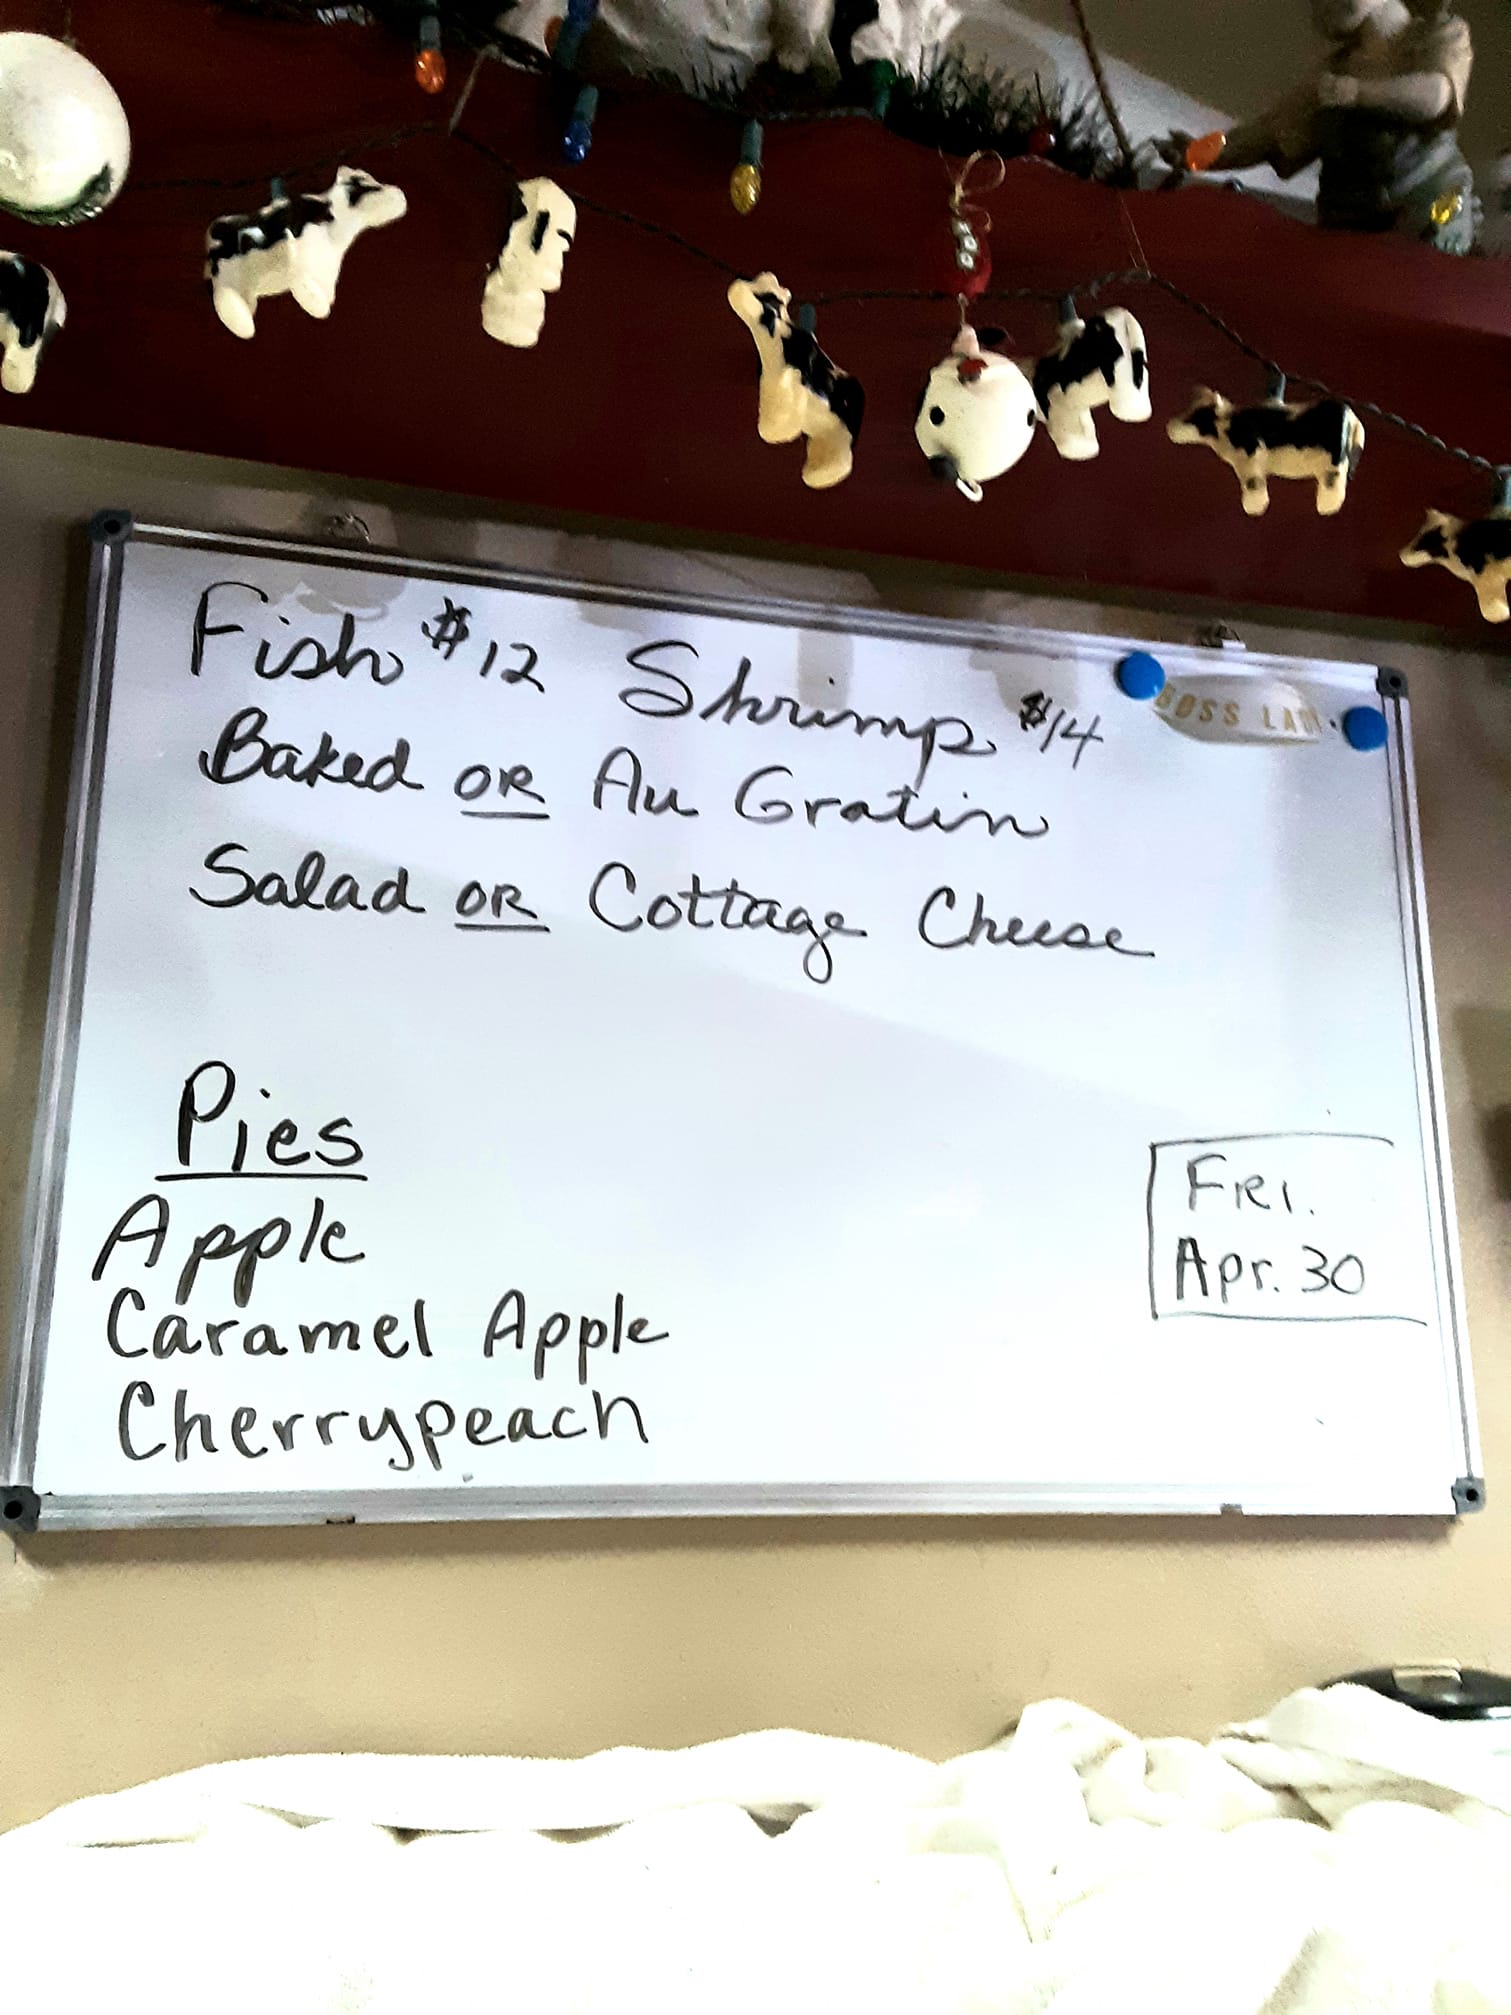 Fish $12 Shrimp $14
BOSS LADY
Baked OR Au Gratin
Salad OR Cottage Cheese
Pies
Apple
Caramel Apple
Cherrypeach
FRI.
Apr. 30